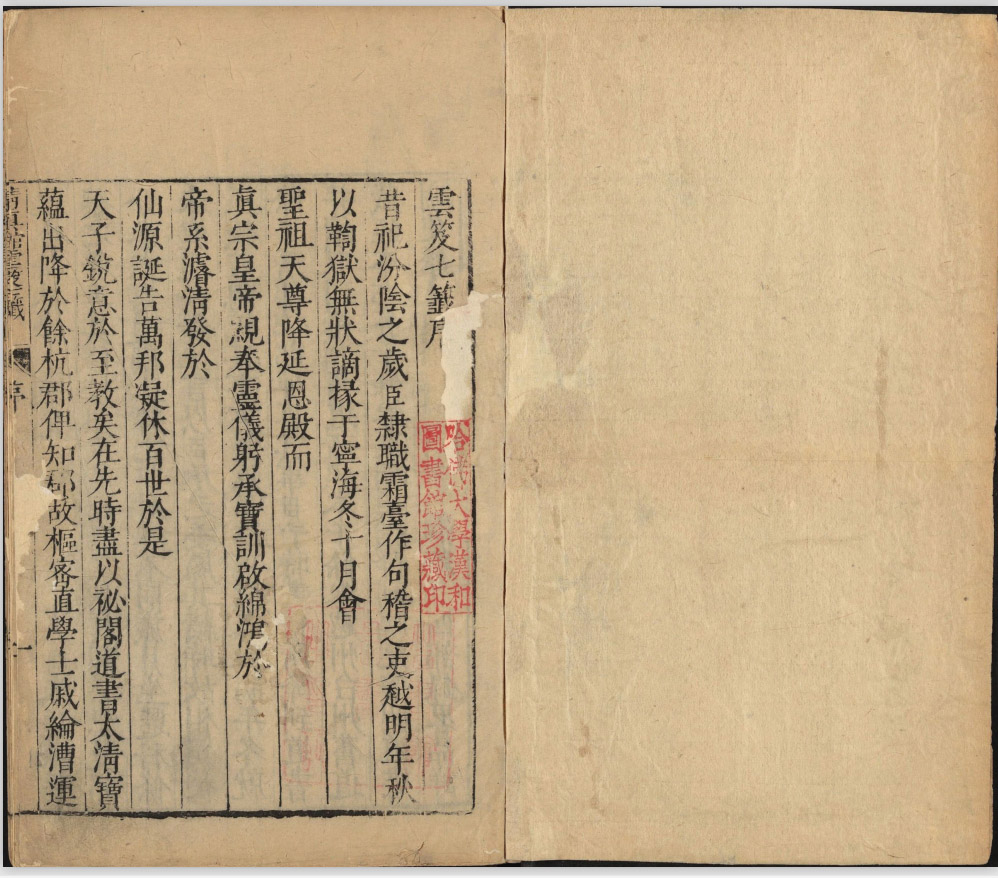 雲笈七籤序
哈佛大學漢和
圖書館珍藏印
昔祀汾陰之歲臣隸職霜臺作句稽之吏越明年秋
以鞫獄無狀謫掾于寧海冬十月會
聖祖天尊降延恩殿而
眞宗皇帝親奉靈儀躬承寶訓啟綿鴻於
帝系濬清發於
仙源誕告萬邦凝休百世於是
天子銳意於至教矣在先時盡以祕閣道書太淸寶
蘊出降於餘杭郡俾知郡故樞密直學士戚綸漕運
序 一